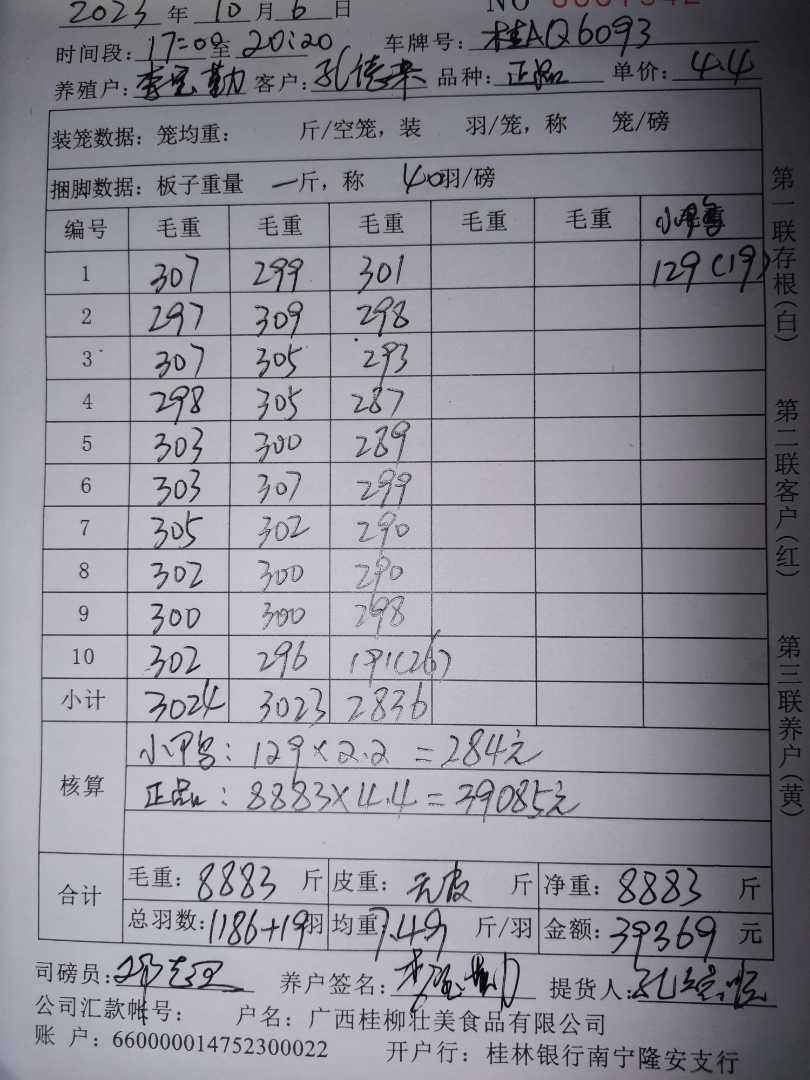 2023 年 10 月 6 日 NO
时间段: 17:00 至 20:20 车牌号: 桂AQ6093
养殖户: 李宝勤 客户: 孔德来 品种: 正品 单价: 4.4
装笼数据: 笼均重: 斤/空笼, 装 羽/笼, 称 笼/磅
捆脚数据: 板子重量 一斤, 称 40羽/磅
编号 毛重 毛重 毛重 毛重 毛重 小鸭
1 307 299 301 129(19)
2 297 309 298
3 307 305 293
4 298 305 287
5 303 300 289
6 303 307 299
7 305 302 290
8 302 300 290
9 300 300 298
10 302 296 191(26)
小计 3024 3023 2836
核算
小鸭: 129×2.2=284元
正品: 8883×4.4=39085元
合计
毛重: 8883 斤 皮重: 无皮 斤 净重: 8883 斤
总羽数: 1186+19羽 均重 7.49 斤/羽 金额: 39369 元
司磅员: 养户签名: 李宝勤 提货人:
公司汇款帐号: 户名: 广西桂柳壮美食品有限公司
账 户: 660000014752300022 开户行: 桂林银行南宁隆安支行
第一联存根(白) 第二联客户(红) 第三联养户(黄)